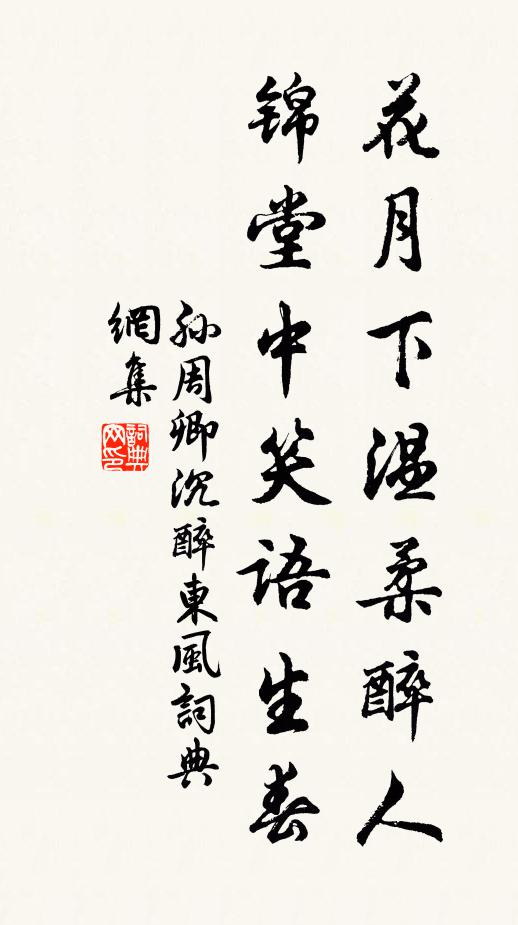 花月下温柔醉人
锦堂中笑语生春
孙周卿沉醉東風詞典
網集
詞典网印